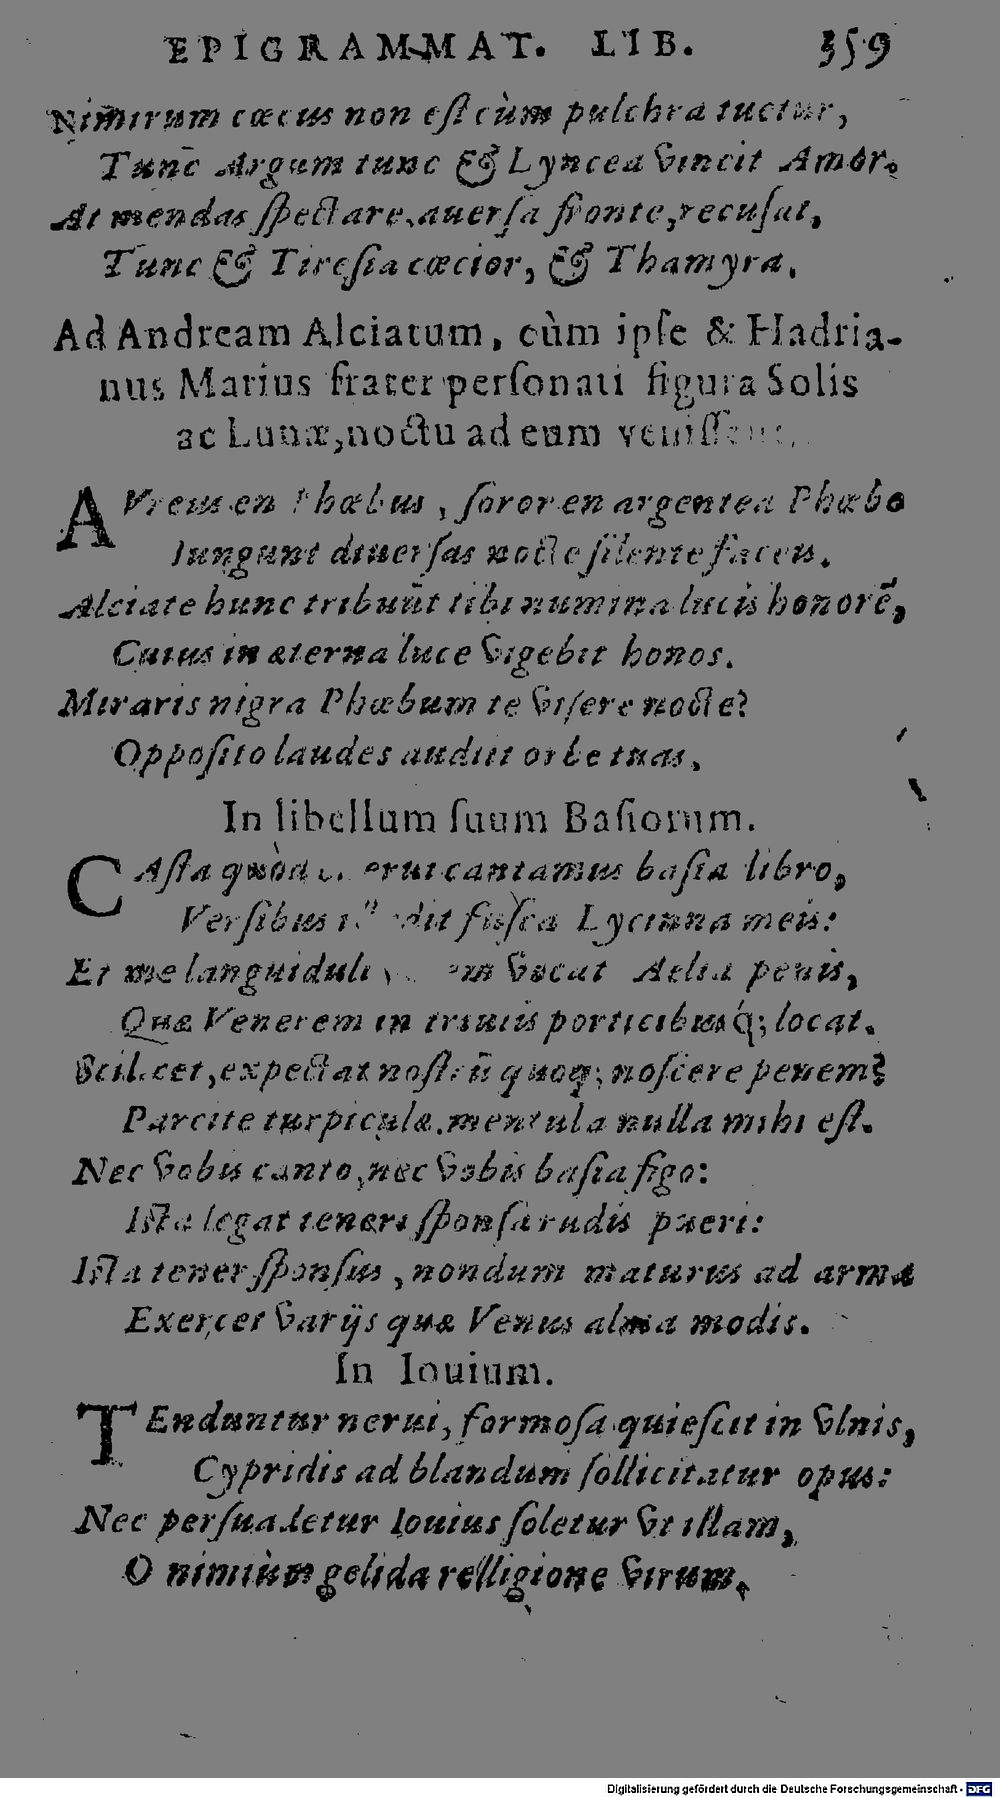 EPIGRAMMAT. LIB. 359
Nimirum cœcus non est cùm pulchra tuctur,
Tunc Argum tunc & Lyncea vincit Amor.
At mendas spectare, auersa fronte, recusat,
Tunc & Tiresia cœcior, & Thamyra.
Ad Andream Alciatum, cùm ipse & Hadria-
nus Marius frater personati figura Solis
ac Lunæ, noctu ad eum venissent.
AVreus en Phœbus, soror en argentea Phœbo
Iungunt diuersas nocte silente faceis.
Alciate hunc tribuūt tibi numina lucis honorē,
Cuius in æterna luce vigebit honos.
Miraris nigra Phœbum te visere nocte?
Opposito laudes audiit orbe tuas.
In libellum suum Basiorum.
CAsta quòd cantamus basia libro,
Versibus fusca Lycinna meis:
Et me languiduli vocat Aelia penis,
Quæ Venerem in triuiis porticibusq́; locat.
Scilicet, expectat nostrū quoq; noscere penem?
Parcite turpiculæ. mentula nulla mihi est.
Nec vobis canto, nec vobis basia figo:
Ista legat teneri sponsa rudis pueri:
Ista tener sponsus, nondum maturus ad arma
Exercet varijs quæ Venus alma modis.
In Iouium.
TEnduntur nerui, formosa quiescit in vlnis,
Cypridis ad blandum sollicitatur opus:
Nec persuadetur Iouius soletur vt illam,
O nimiùm gelida relligione virum.
Digitalisierung gefördert durch die Deutsche Forschungsgemeinschaft - DFG